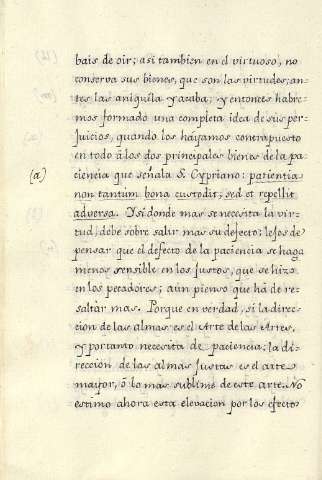 bais de oir; asi tambien en el virtuoso, no
conserva sus bienes, que son las virtudes; an-
tes las aniquila y acaba; y entonces habre-
mos formado una completa idea de sus per-
juicios, quando los hayamos contrapuesto
en todo à los dos principales bienes de la pa-
(a) ciencia que señala S. Cypriano: patientia
non tantum bona custodit, sed et repellit
adversa. Y si donde mas se necesita la vir-
tud, debe sobre salir mas su defecto; lejos de
pensar que el defecto de la paciencia se haga
menos sensible en los justos, que se hizo
en los pecadores; aùn pienso que há de re-
saltar mas. Porque en verdad, si la direc-
cion de las almas es el Arte de las Artes,
y por tanto necesita de paciencia; la di-
reccion de las almas justas es el arte
mayor, ò lo mas sublime de este arte. No
estimo ahora esta elevacion por los efecto-